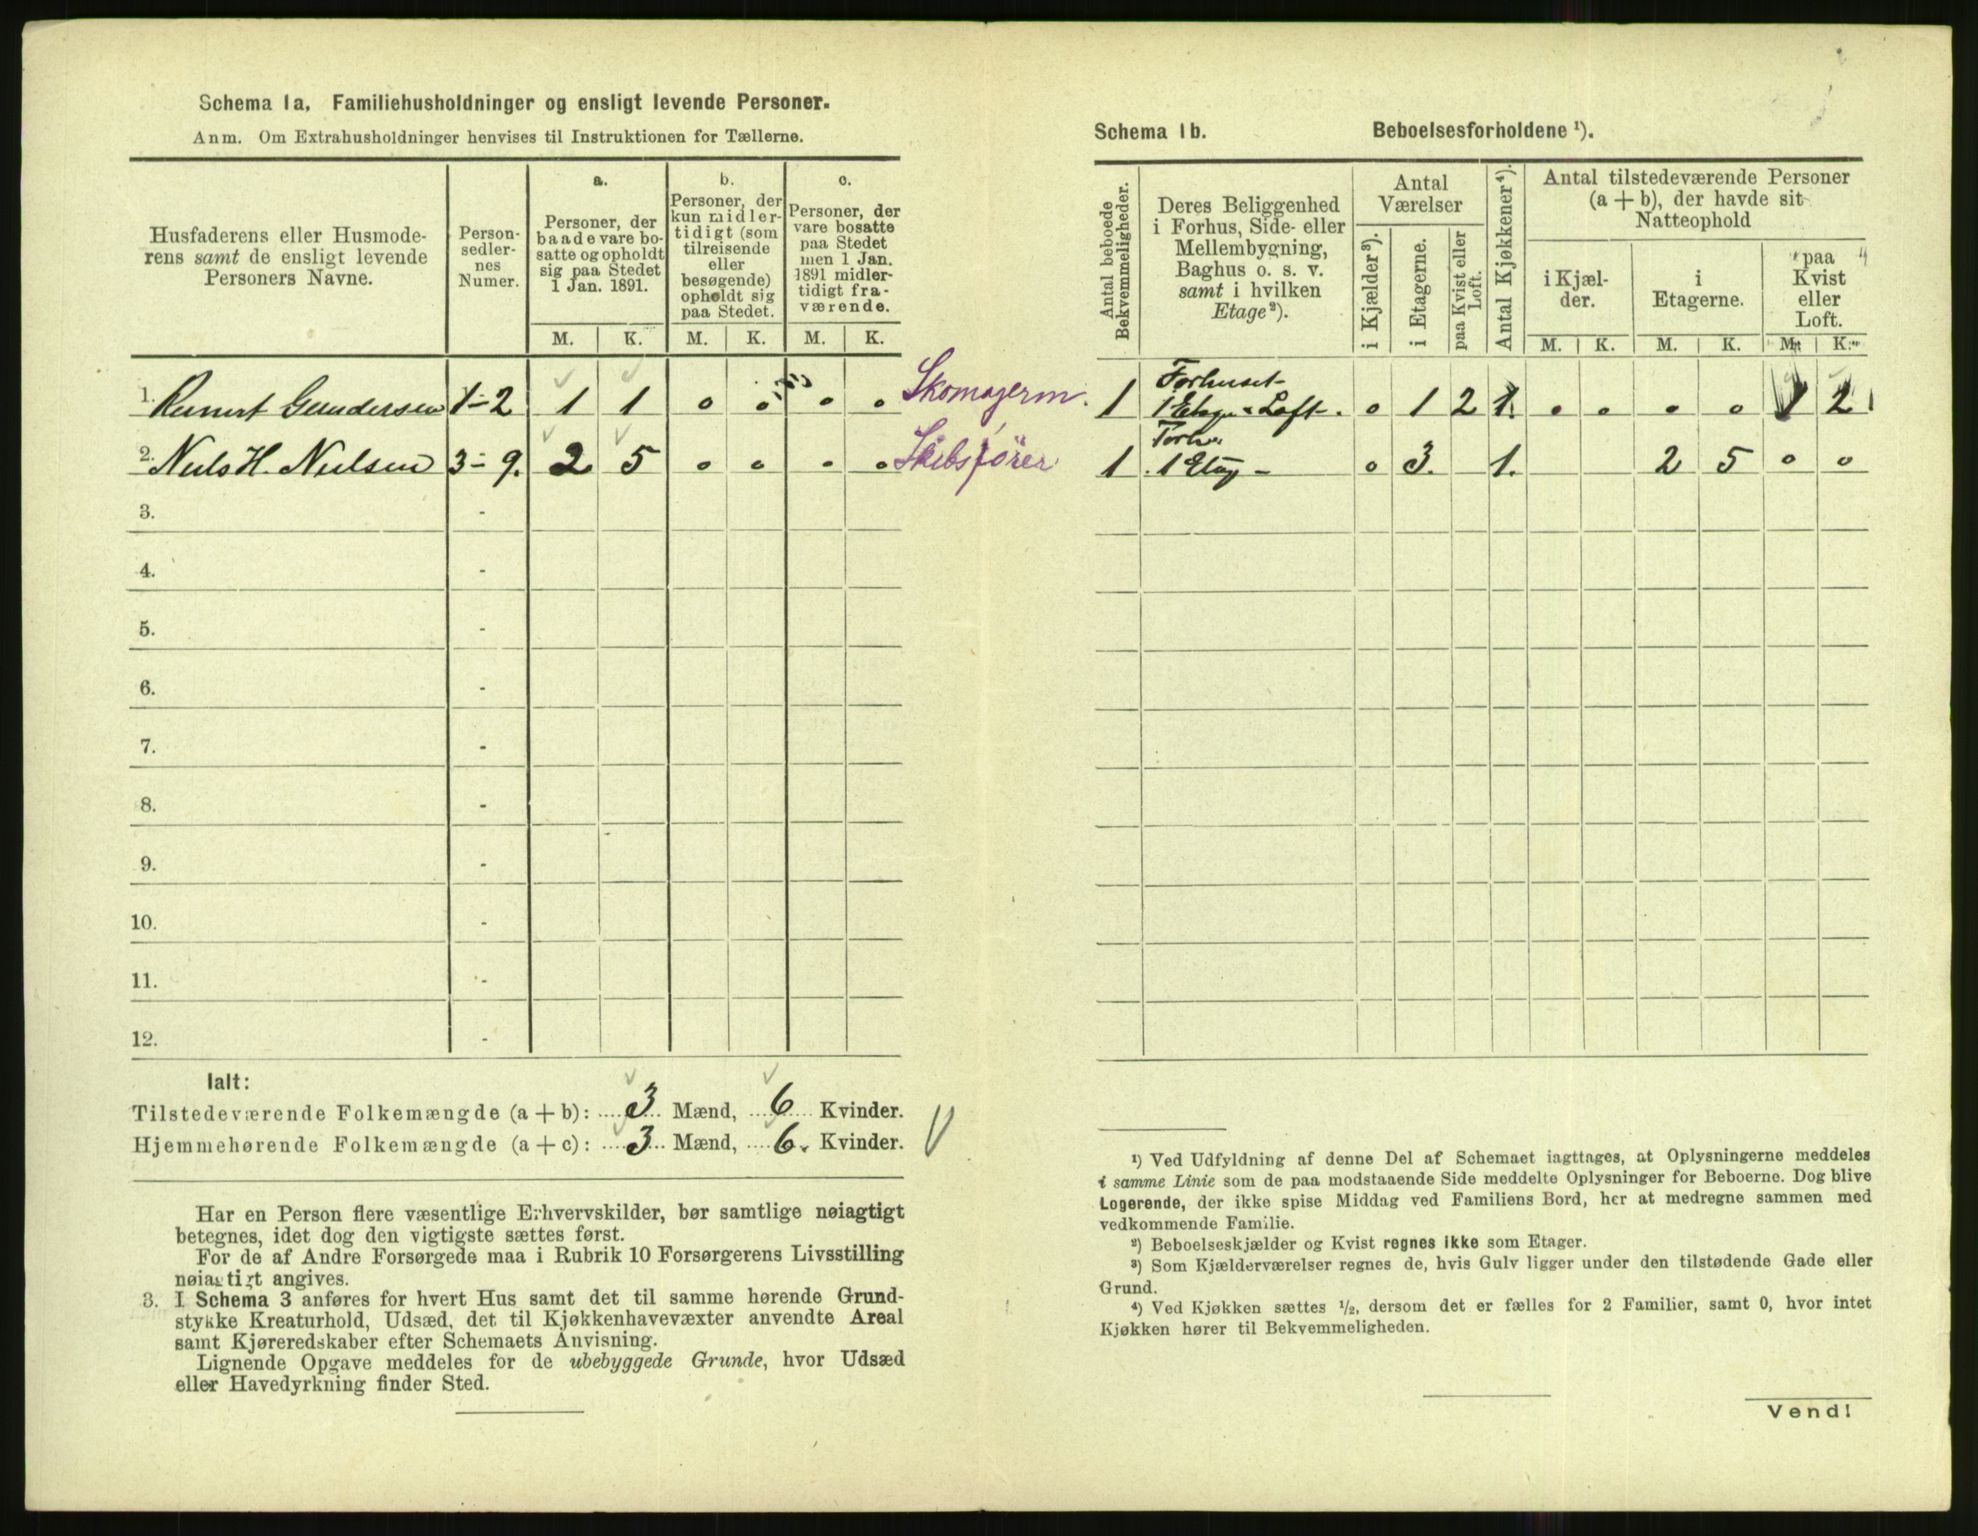 Schema 1a. Familiehusholdninger og ensligt levende Personer.
Anm. Om Extrahusholdninger henvises til Instruktionen for Tællerne.
Husfaderens eller Husmode-
rens samt de ensligt levende
Personers Navne.
Person-
sedler-
nes
Numer.
a.
Personer, der
baade vare bo-
satte og opholdt
sig paa Stedet
1 Jan. 1891.
b.
Personer, der
kun midler-
tidigt (som
tilreisende
eller
besøgende)
opholdt sig
paa Stedet.
c.
Personer, der
vare bosatte
paa Stedet
men 1 Jan.
1891 midler-
tidigt fra-
værende.
M. K. M. K. M. K.
1. Gundersen 1-2 1 1 0 0 0 0 Skomagerm.
2. Niels H. Nielsen 3-9. 2 5 0 0 0 0 Skibsfører
3. -
4. -
5. -
6. -
7. -
8. -
9. -
10. -
11. -
12. -
Ialt:
Tilstedeværende Folkemængde (a + b): 3 Mænd, 6 Kvinder.
Hjemmehørende Folkemængde (a + c): 3 Mænd, 6. Kvinder.
Har en Person flere væsentlige Erhvervskilder, bør samtlige nøiagtigt
betegnes, idet dog den vigtigste sættes først.
For de af Andre Forsørgede maa i Rubrik 10 Forsørgerens Livsstilling
nøiagtigt angives.
3. I Schema 3 anføres for hvert Hus samt det til samme hørende Grund-
stykke Kreaturhold, Udsæd, det til Kjøkkenhavevæxter anvendte Areal
samt Kjøreredskaber efter Schemaets Anvisning.
Lignende Opgave meddeles for de ubebyggede Grunde, hvor Udsæd
eller Havedyrkning finder Sted.
Schema 1b. Beboelsesforholdene ¹).
Antal beboede
Bekvemmeligheder.
Deres Beliggenhed
i Forhus, Side- eller
Mellembygning,
Baghus o. s. v.
samt i hvilken
Etage²).
Antal
Værelser
i Kjælder³).
i Etagerne.
paa Kvist eller
Loft.
Antal Kjøkkener⁴).
Antal tilstedeværende Personer
(a + b), der havde sit
Natteophold
i Kjæl-
der.
i
Etagerne.
paa
Kvist
eller
Loft.
M. K. M. K. M. K.
Forhuset
1 1 Etage - Loft. 0 1 2 1. 0 0 0 0 1 2
Forh.
1 1 Etag - 0 3. 1. 2 5 0 0
¹) Ved Udfyldning af denne Del af Schemaet iagttages, at Oplysningerne meddeles
i samme Linie som de paa modstaaende Side meddelte Oplysninger for Beboerne. Dog blive
Logerende, der ikke spise Middag ved Familiens Bord, her at medregne sammen med
vedkommende Familie.
²) Beboelseskjælder og Kvist regnes ikke som Etager.
³) Som Kjælderværelser regnes de, hvis Gulv ligger under den tilstødende Gade eller
Grund.
⁴) Ved Kjøkken sættes ½, dersom det er fælles for 2 Familier, samt 0, hvor intet
Kjøkken hører til Bekvemmeligheden.
Vend!